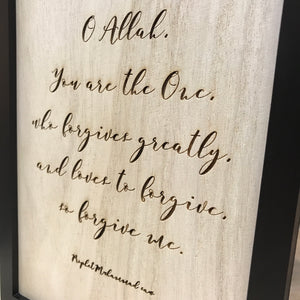 O Allah.
You are the One.
who forgives greatly.
and loves to forgive.
so forgive me.
Prophet Muhammad